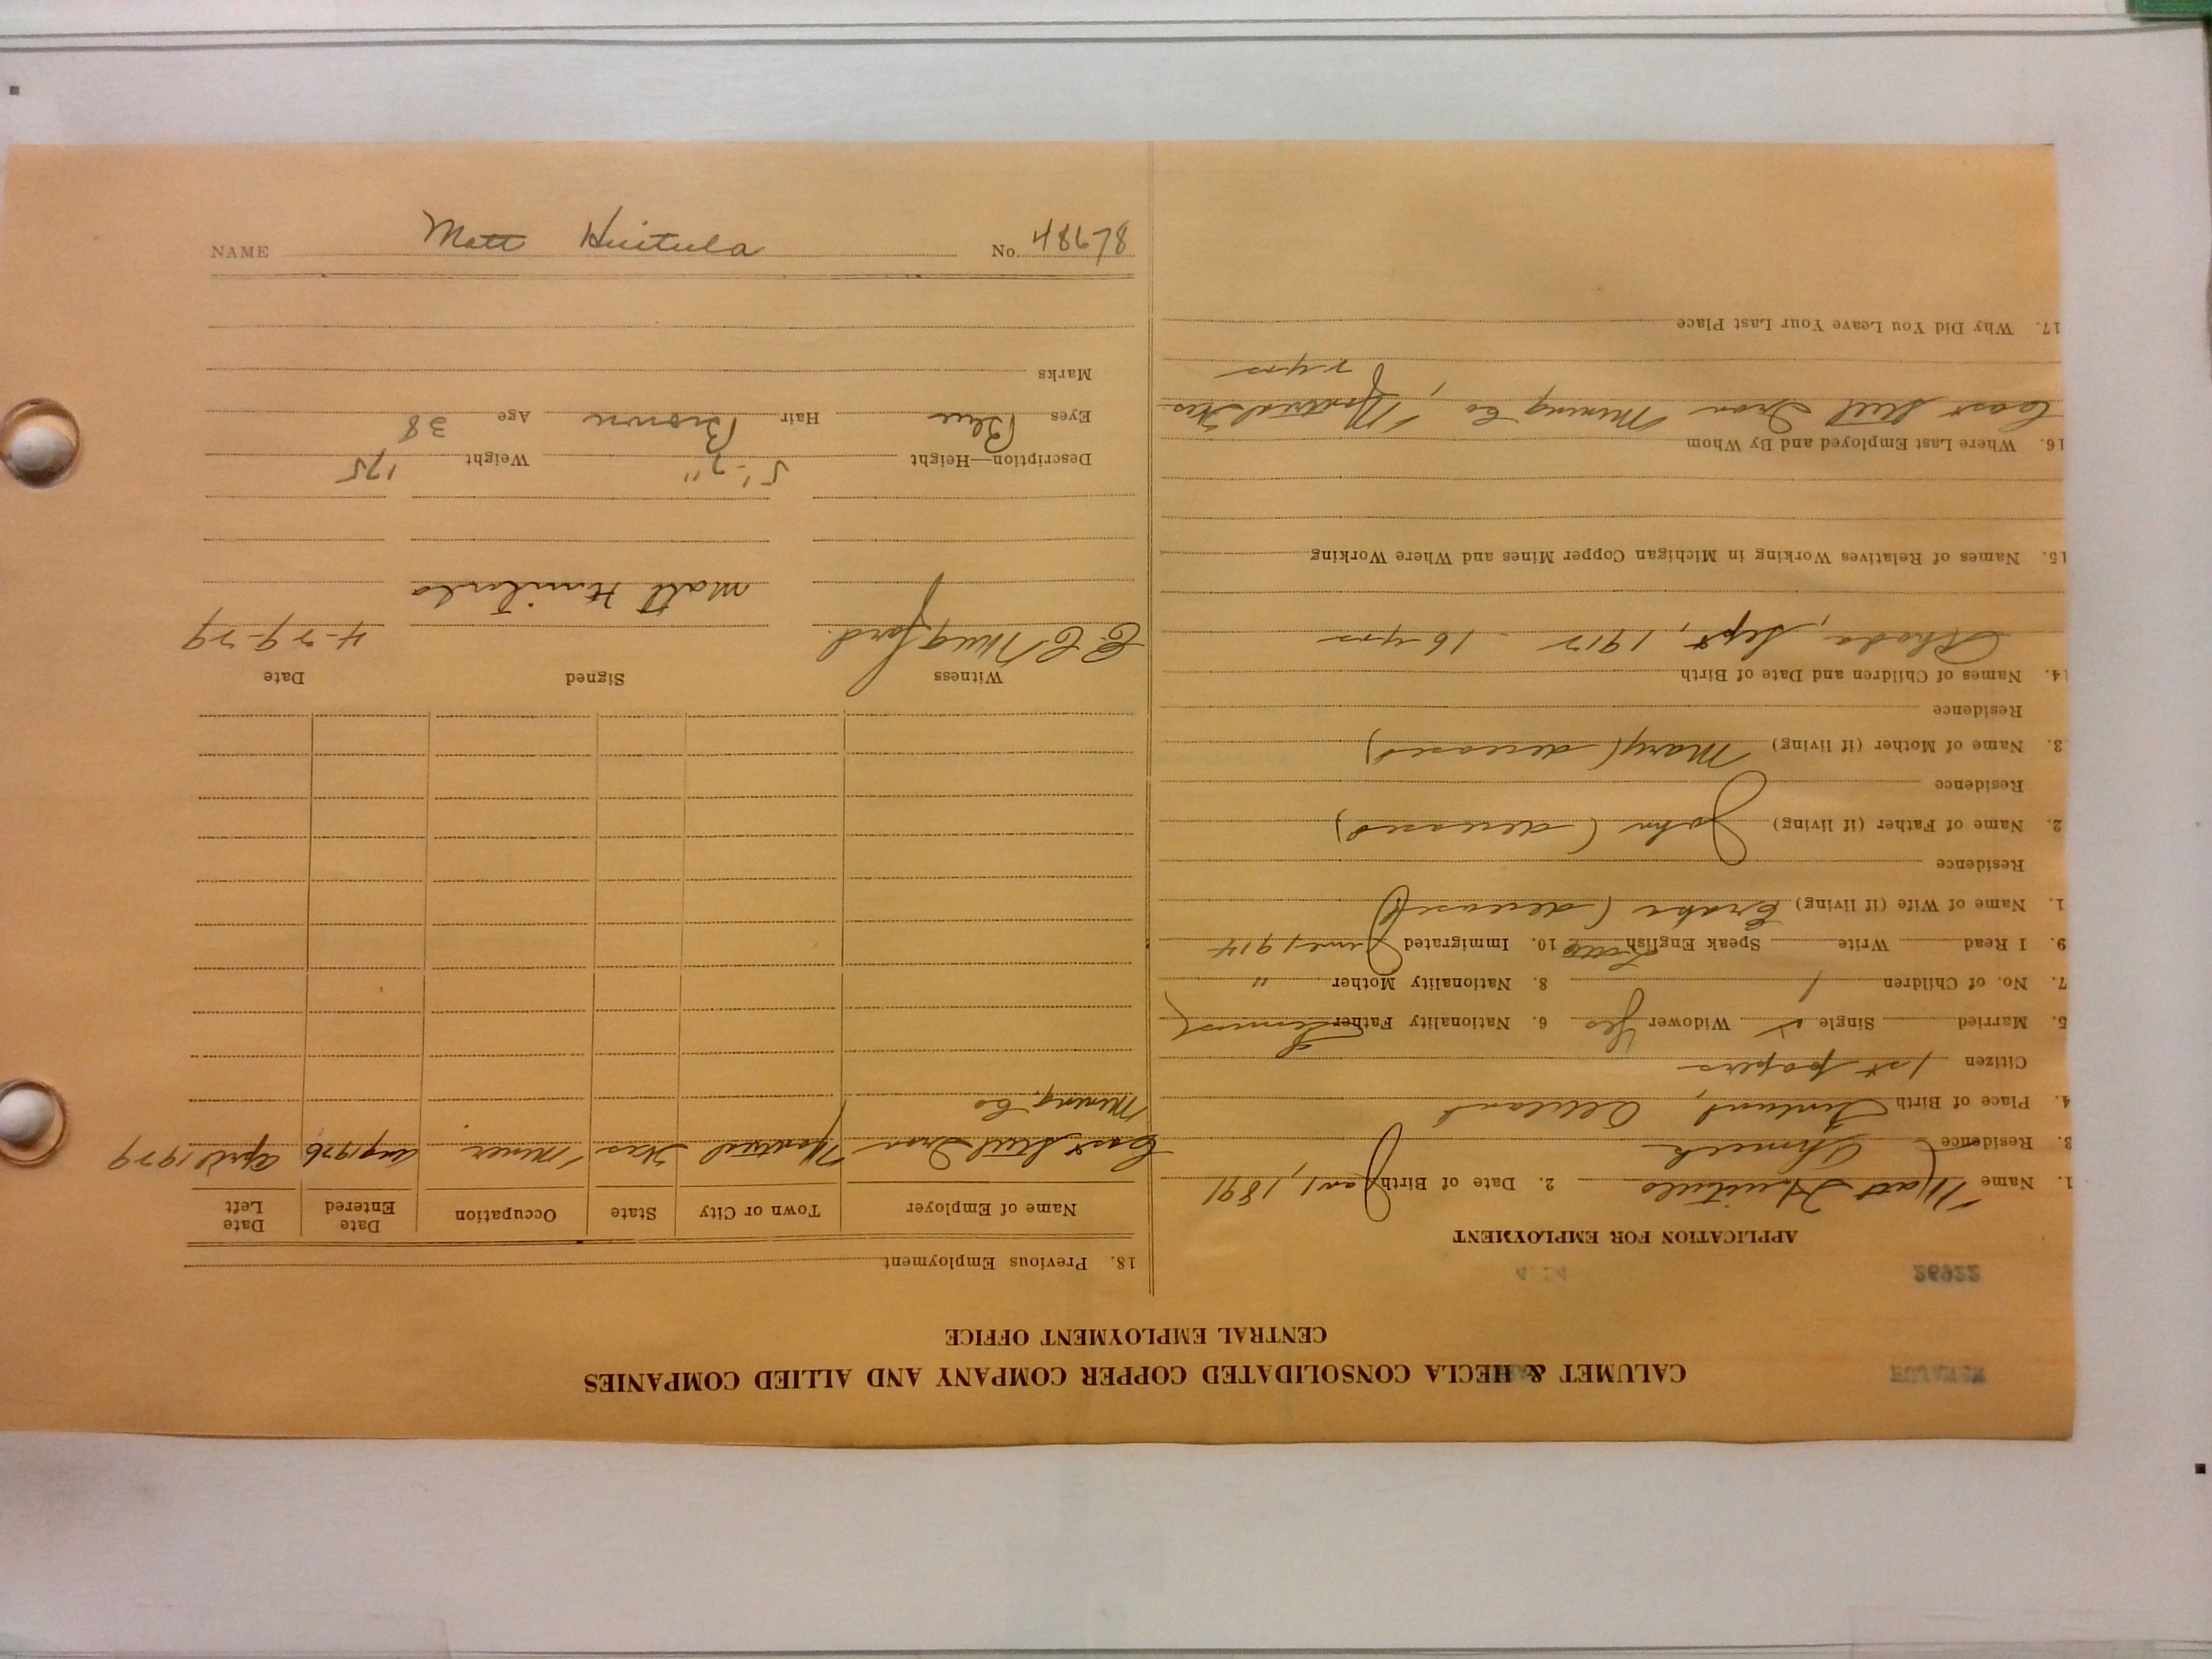 CALUMET & HECLA CONSOLIDATED COPPER COMPANY AND ALLIED COMPANIES
CENTRAL EMPLOYMENT OFFICE
26922
APPLICATION FOR EMPLOYMENT
1. Name Matt Huitula 2. Date of Birth Jan 1, 1891
3. Residence Ahmeek
4. Place of Birth Finland,
Citizen 1st papers
5. Married Single ✓ Widower Yes 6. Nationality Father Finnish
7. No. of Children 1 8. Nationality Mother "
9. I Read Write Speak English Little 10. Immigrated June, 1914
1. Name of Wife (if living) (deceased)
Residence
2. Name of Father (if living) John (deceased)
Residence
3. Name of Mother (if living) Mary (deceased)
Residence
14. Names of Children and Date of Birth
Rhoda, Sept, 1912 - 16 yrs
15. Names of Relatives Working in Michigan Copper Mines and Where Working
16. Where Last Employed and By Whom
Cast Steel Iron Mining Co, Montreal Wis
2 yrs
17. Why Did You Leave Your Last Place
18. Previous Employment
Name of Employer Town or City State Occupation Date Entered Date Left
Cast Steel Iron Montreal Wis Miner Aug 1926 April 1929
Mining Co
Witness Signed Date
C. C. Mugford. Matt Huitula 4-29-29
Description—Height 5'-7" Weight 175
Eyes Blue Hair Brown Age 38
Marks
NAME Matt Huitula No. 48678